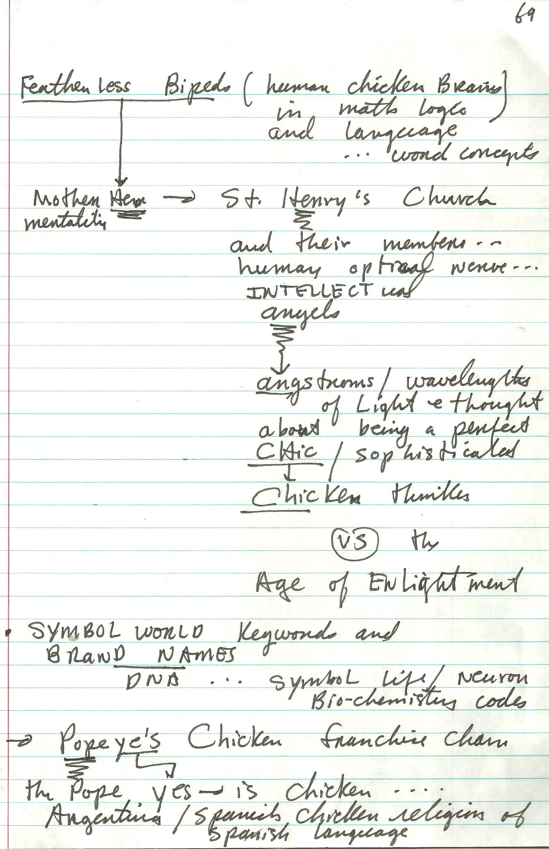 69
Featherless Bipeds (human chicken Brains)
in math logic
and language
... word concepts
Mother Hen → St. Henry's Church
mentality
and their members...
human optical nerve...
INTELLECTual
angels
angstroms/ wavelengths
of Light e thought
about being a perfect
CHic / sophisticated
Chicken thinker
VS th
Age of ENLightment
• SYMBOL WORLD Keywords and
BRAND NAMES
DNA ... Symbol Life/ Neuron
Bio-chemistry codes
→ Popeye's Chicken franchise chain
the Pope yes → is chicken ....
Argentina / Spanish chicken religion of
Spanish language